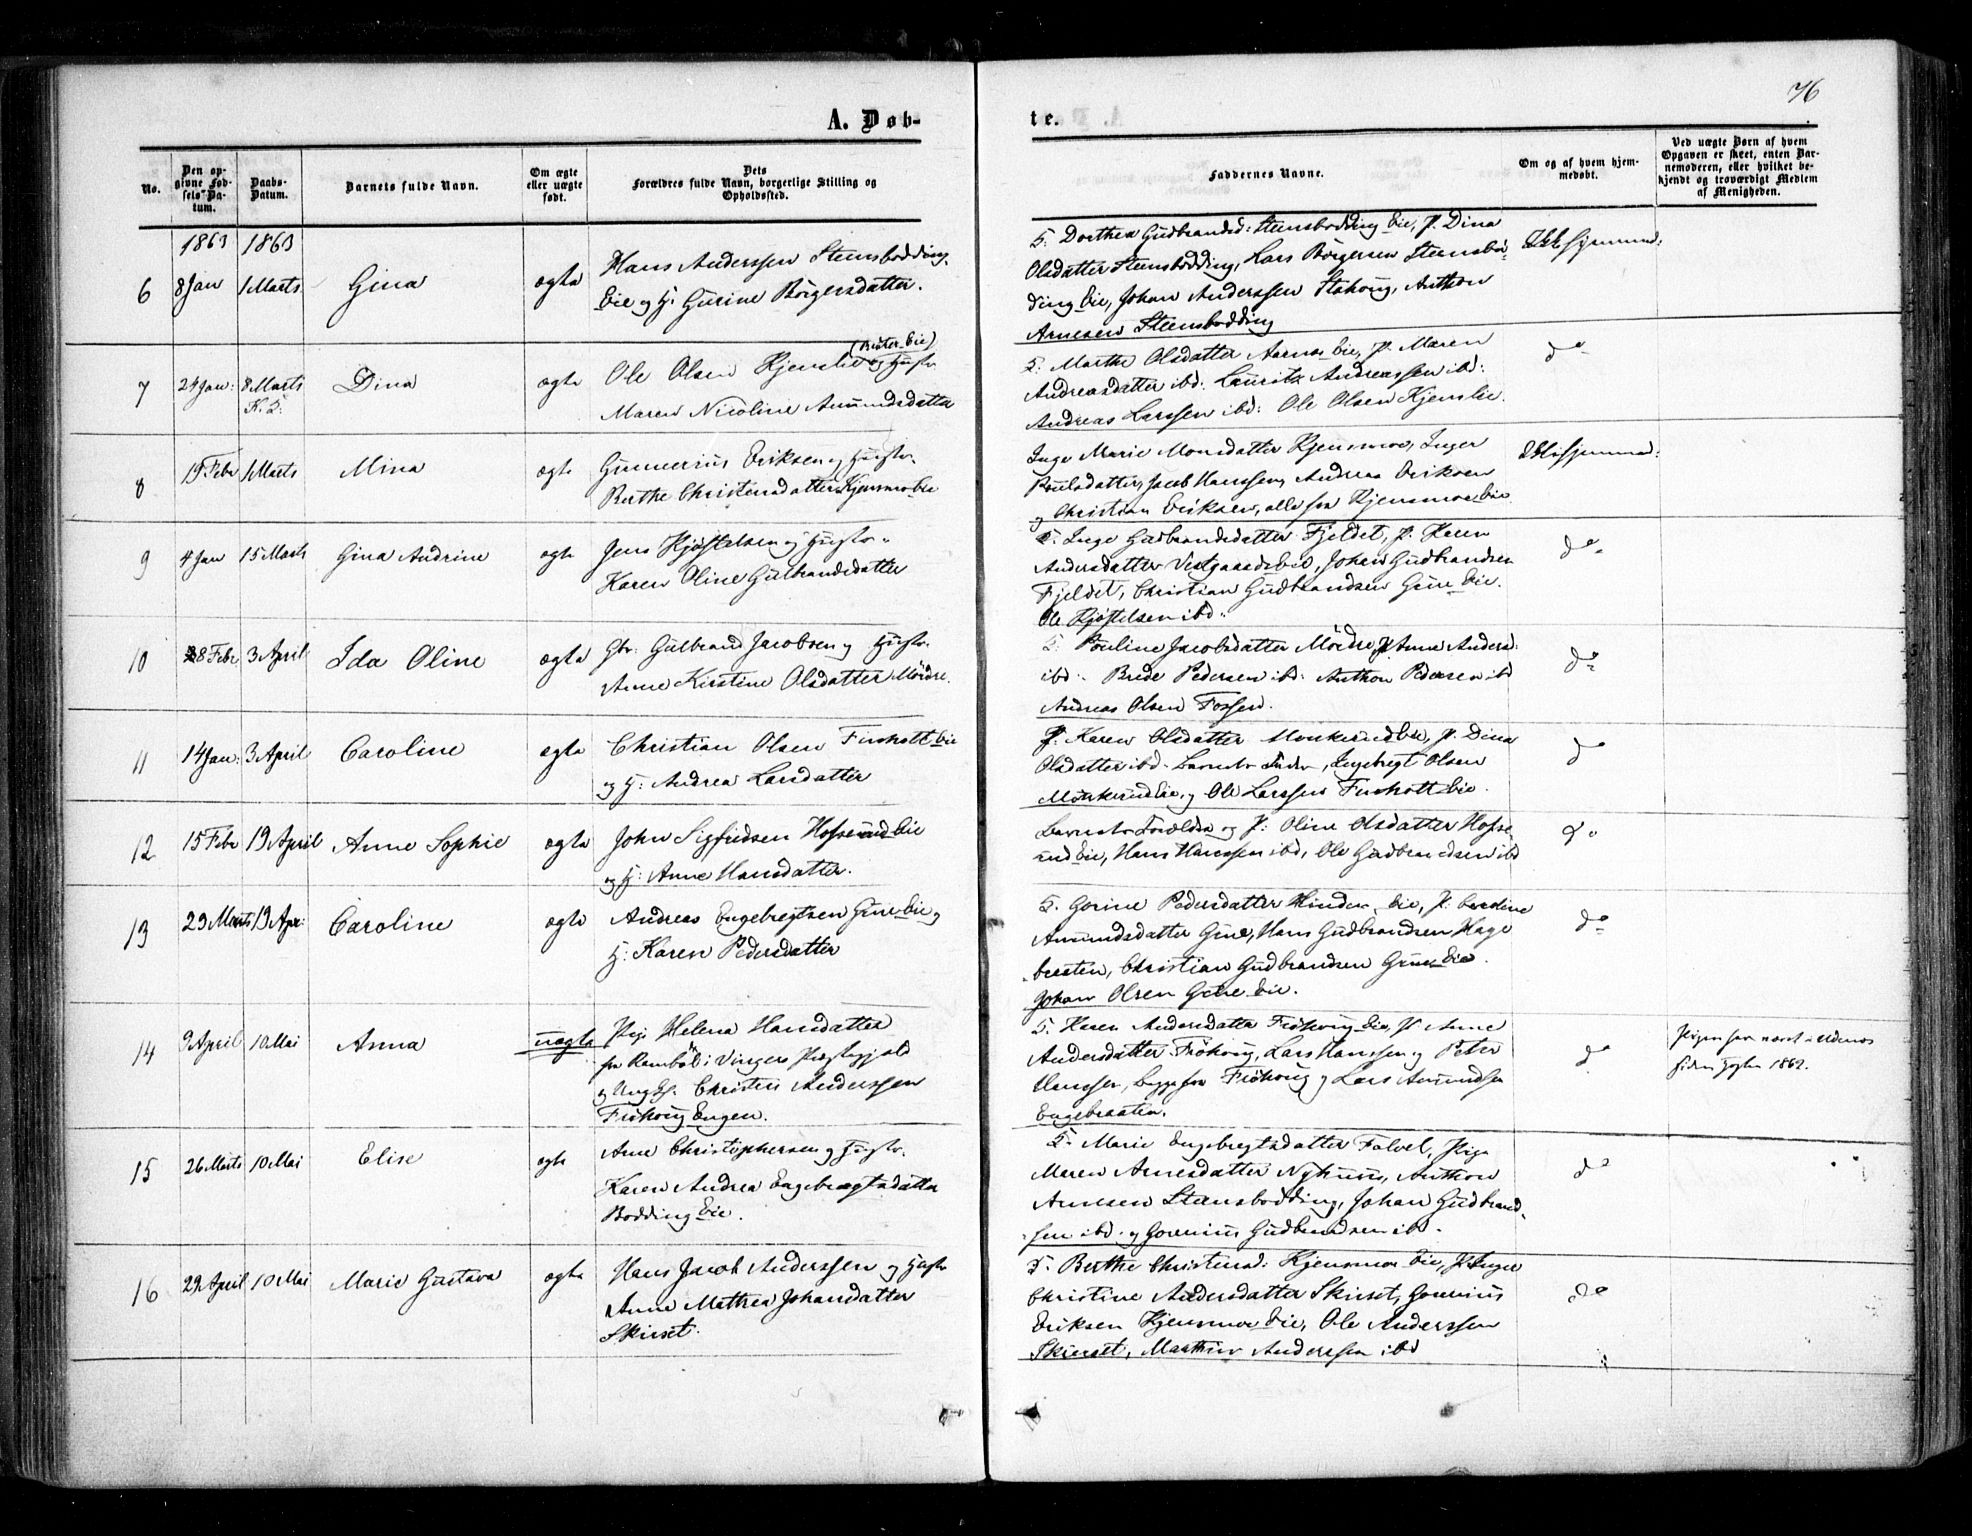 76
A. Døb-
te.
No.
Den op-
givne Fød-
sels Da-
tum.
Daabs-
Datum.
Barnets fulde Navn.
Om ægte
eller uægte
født.
Dets
Forældres fulde Navn, borgerlige Stilling og
Opholdssted.
Faddernes Navne.
Om og af hvem hjem-
medøbt.
Ved uægte Børn af hvem
Opgaven er skeet, enten Bar-
nemoderen, eller hvilket be-
kjendt og troværdigt Medlem
af Menigheden.
1863 1863
6 8 Jan 1 Marts Gina ægte
Hans Anderssen Steensbødding
Eie og H. Gurine Børgersdatter.
G. Dorthea Gudbrandsd: Steensbødding Eie, P. Dina
Olsdatter Steensbødding, Lars Børgersen Steensbø-
ding Eie, Johan Anderssen Frøhoug, Anthon
Arnesen Steensbødding
Ikke hjemmed:
7 24 Jan: 8 Marts Dina ægte
K. I:
Ole Olsen Kjenslie og Hustr.
Maren Nicoline Amundsdatter
G. Marthe Olsdatter Aarnes Eie, P. Maren
Andreasdatter ibd: Lauritz Andreassen ibd:
Andreas Larssen ibd: Ole Olsen Kjenslie.
do
8 19 Febr 1 Marts Mina ægte
Gunnerius Eriksen og Hustr.
Berthe Christensdatter Kjensmoe Eie
Inge Marie Monsdatter Kjensmoe, Inger
Poulsdatter, Jacob Hanssen, Andreas Eriksen
og Christian Eriksen, alle fra Kjensmoe Eie
Ikke hjemmed:
9 4 Jan 15 Marts Gina Andrine ægte
Jens Kjøstelsen og Hustr.
Karen Oline Gulbrandsdatter
G. Inge Gudbrandsdatter Fjeldet, P. Karen
Andersdatter Vestgaards Eie, Johan Gudbrandsen
Fjeldet, Christian Gudbrandsen Grue Eie.
Ole Kjøstelsen ibd:
do
10 28 Febr 3 April Ida Oline ægte
Gbr. Gulbrand Jacobsen og Hustr.
Anne Kirstine Olsdatter Mørdre.
G. Pouline Jacobsdatter Mørdre, P. Anne Andersd:
ibd: Brede Pedersen ibd: Anthon Pedersen ibd
Andreas Olsen Fossen.
do
11 14 Jan: 3 April Caroline ægte
Christian Olsen Finholt Eie
og H: Andrea Larsdatter
P. Karen Olsdatter Munkerud Eie, P. Dina
Olsdatter ibd. Barnets Fader, Ingebregt Olsen
Munkerud Eie, og Ole Larssen Finholt Eie.
do
12 15 Febr 19 April Anne Sophie ægte
John Sigfridsen Hofserud Eie
og H: Anne Hansdatter.
Barnets Forældre og P: Oline Olsdatter Hofse-
rud Eie, Hans Hanssen ibd, Ole Gudbrandsen ibd
do
13 29 Marts 19 Apr: Caroline ægte
Andreas Engebregtsen Grue Eie og
H: Karen Pedersdatter
G. Gorine Pedersdatter Hinder Eie, P. Caroline
Amundsdatter Grue, Hans Gudbrandsen Hage
braaten, Christian Gudbrandsen Grue Eie.
Johan Olsen Grue Eie.
do
14 9 April 10 Mai Anna uægte
Pige Helena Hansdatter
fra Rambøl i Vingers Præstegjeld
og Ungk. Christen Anderssen
Frøhoug Engen.
G. Karen Andersdatter Frøhoug Eie, P. Anne
Andersdatter Frøhoug, Lars Hanssen og Peter
Hanssen, begge fra Frøhoug og Lars Amundsen
Engebraaten.
do
Pigen har været i Udenæs
siden 1862.
15 26 Marts 10 Mai Elise ægte
Arne Christophersen og Hustr.
Karen Andrea Engebregtsdatter
Bodding Eie.
G. Marie Engebregtsdatter Falvel, Pige
Maren Arnesdatter Nyhuus, Anthon
Arnesen Steensbodding, Johan Gudbrand-
sen ibd. og Gorenius Gudbrandsen ibd.
do
16 29 April 10 Mai Marie Gustava ægte
Hans Jacob Anderssen og Hustr
Anne Mathea Johansdatter
Skirset.
G. Berthe Christensd: Kjensmoe Eie, P. Inger
Christine Andersdatter Skirset, Gorenius
Eriksen Kjensmoe Eie, Ole Anderssen
Skirset, Mathias Anderssen ibd
do